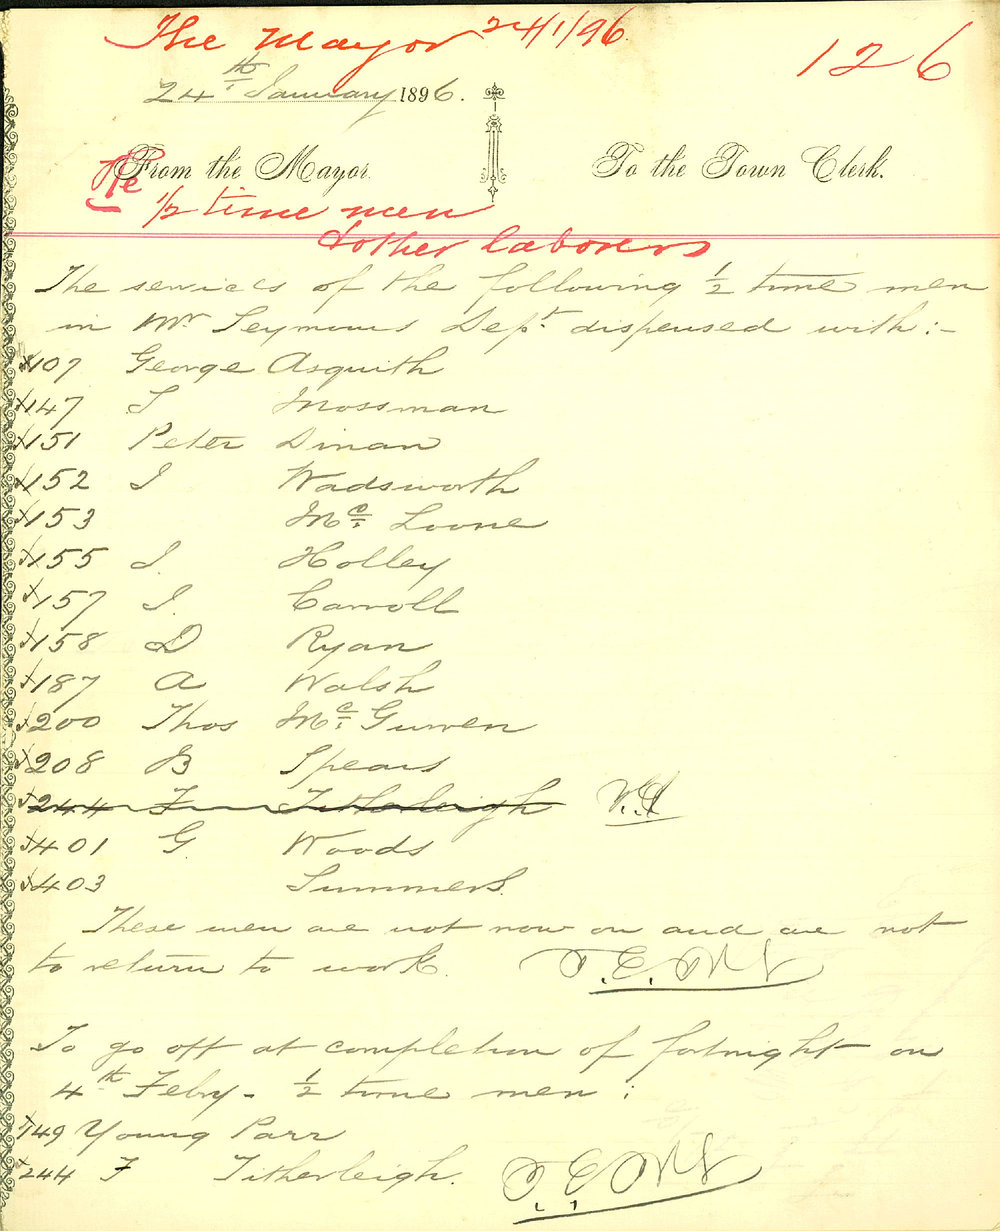 The Mayor 24/1/96
126
24th January 1896.
From the Mayor. To the Town Clerk.
Re 1/2 time men
& other laborers
The services of the following 1/2 time men
in Mr Seymours Dept. dispensed with :-
107 George Asquith
147 T Mossman
151 Peter Dinan
152 J Wadsworth
153 Mc. Loone
155 J. Holley
157 J. Carroll
158 D Ryan
187 A Walsh
200 Thos Mc. Guiren
208 B Spears
244 F Titherleigh
401 G Woods
403 Summers.
These men are not now on and are not
to return to work.
To go off at completion of fortnight on
4th Feby - 1/2 time men :
149 Young Parr
244 F Titherleigh.